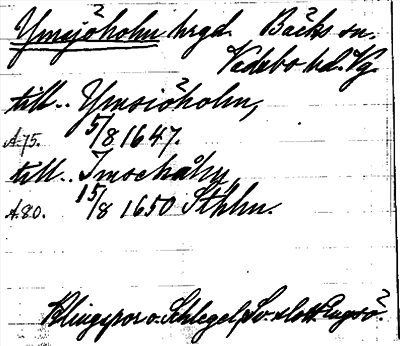 Ymsjöholm hrgd. Bäcks sn.
Vadsbo hd. Vg
till.. Ymsiöholm,
A. 75. 5/8 1647.
till.. Imschålm,
A. 80. 15/8 1650 Sthlm.
Klingspor o. Schlegel, Sv. slott. Engsö?